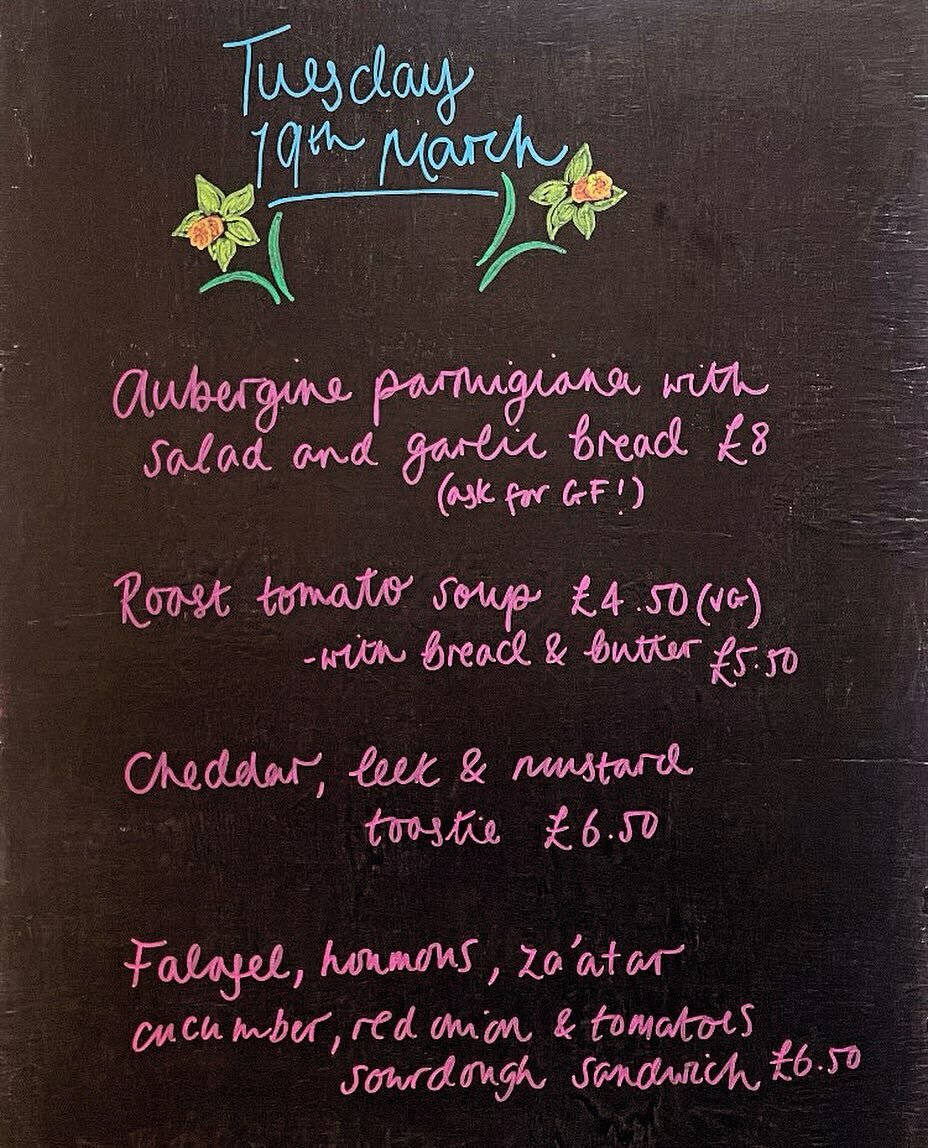 Tuesday
19th March
Aubergine parmigiana with
salad and garlic bread £8
(ask for GF!)
Roast tomato soup £4.50 (VG)
-with bread & butter £5.50
Cheddar, leek & mustard
toastie £6.50
Falafel, houmous, za'atar
cucumber, red onion & tomatoes
sourdough sandwich £6.50